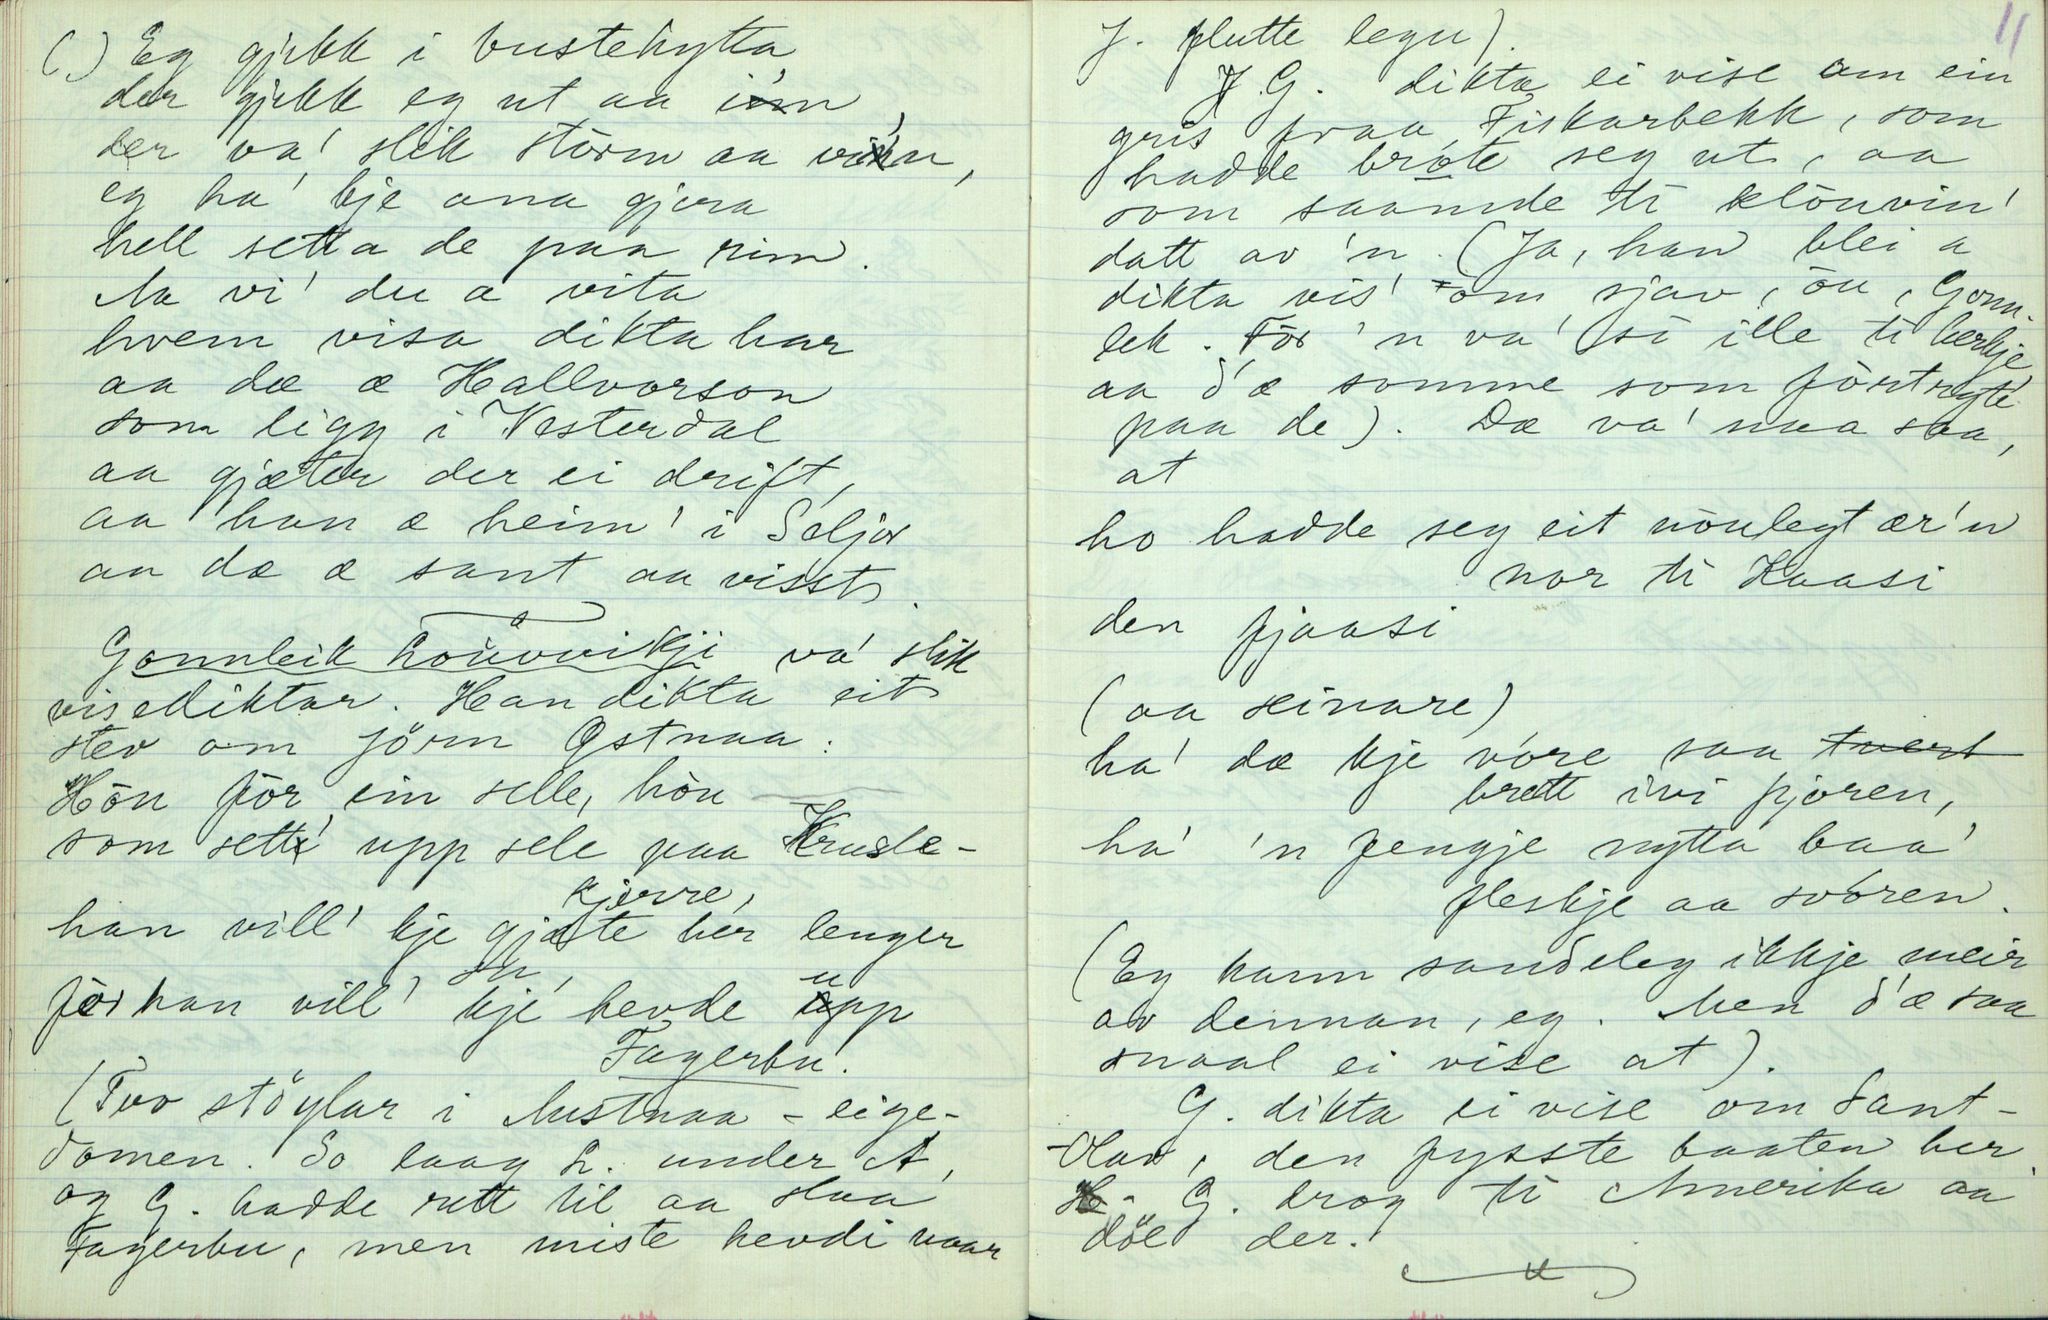 (:) Eg gjekk i bustehytta
der gjekk eg ut aa inn,
der va' slik storm aa vinn,
eg ha' kje ana gjera
hell setta de paa rim.
Aa vi' du a vita
hvem visa dikta har
aa dæ æ Hallvorson
som ligg i Vesterdal
aa gjæter der ei drift,
aa han æ heim' i Seljor
aa dæ æ sant aa visst.
Gonnleik Lòuvvikji va' slik
visediktar. Han dikta eit
stev om Jörn Ostnaa:
Hòn fòr ein selle, hòn
som sette' upp sele paa Krusle-
kjerre,
han vill' kje gjæte her lenger
fòr han vill' kje hevde upp
Fagerbu.
(Tvo stöylar i Austnaa-eige-
domen. So laag L. under A,
og G. hadde rett til aa slaa
Fagerbu, men miste hevdi naar
11
J. flutte legu).
G. dikta ei vise om ein
gris fraa Fiskarbekk, som
hadde bròte seg ut, aa
som saamde ti klòuvin'
datt av 'n. (Ja, han blei a
dikta vis' om sjav, òu, Gonn-
lek. Fòr 'n va' så ille ti herkje
aa d'æ somme som fòrtryte
paa de). Dæ va' naa saa,
at
ho hadde seg eit nònlegt ær'n
nor ti Kaasi
den fjaasi
(aa seinare)
ha' dæ kje vòre saa tvert
brett ivi fjoren,
ha' 'n fengje nytta baa'
fleskje aa svòren.
(Eg kann sandeleg ikkje meir
av dennan, eg. Men d'æ saa
snaal ei vise at).
G. dikta ei vise om Sant-
-Olav, den fysste baaten her.
G. drog ti Amerika aa
döe der.